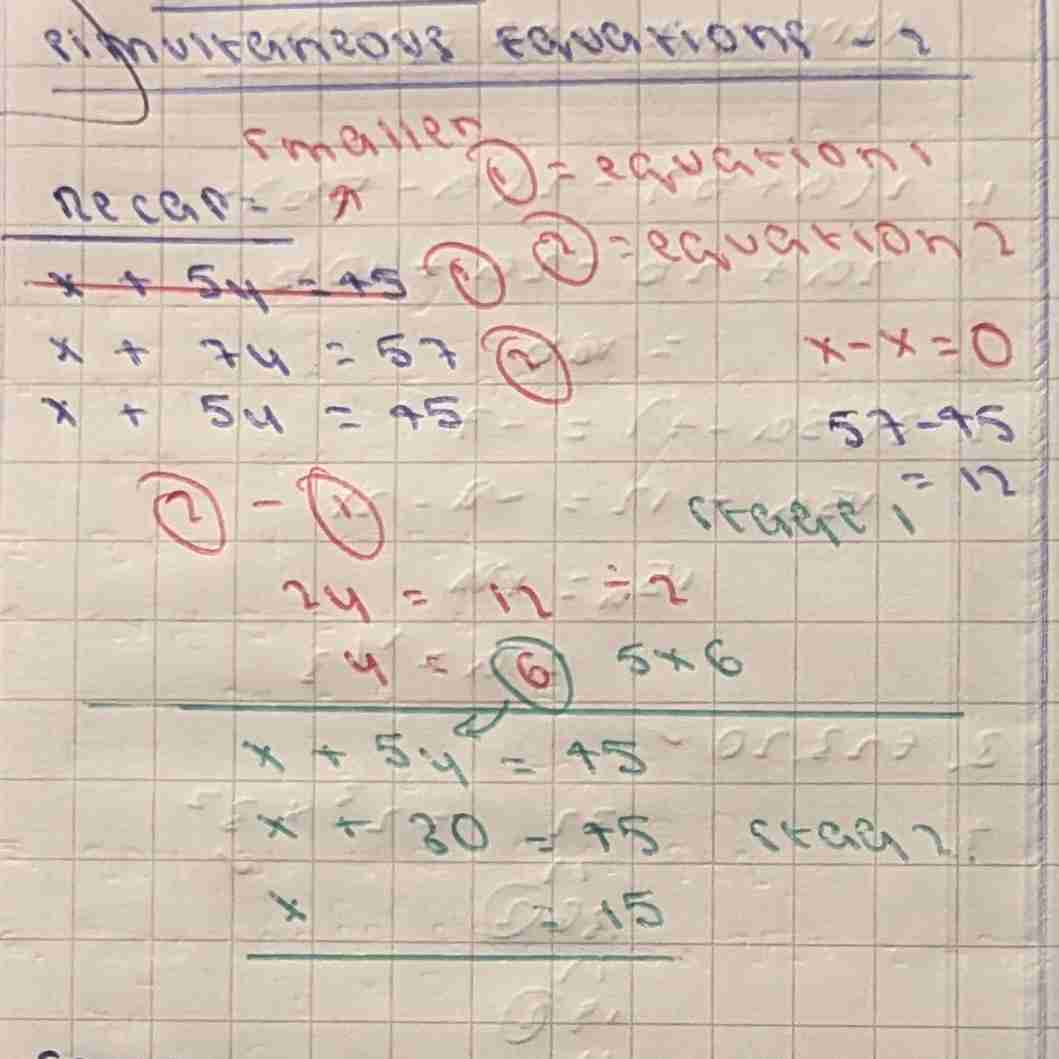 simultaneous equations - 2
smaller
① = equation 1
recap = x
② = equation 2
x + 5y = 45 ①
x + 7y = 57 ②
x - x = 0
x + 5y = 45
57 - 45
= 12
② - ①
stage 1
2y = 12 ÷ 2
y = 6 5 × 6
x + 5y = 45
x + 30 = 45
x = 15